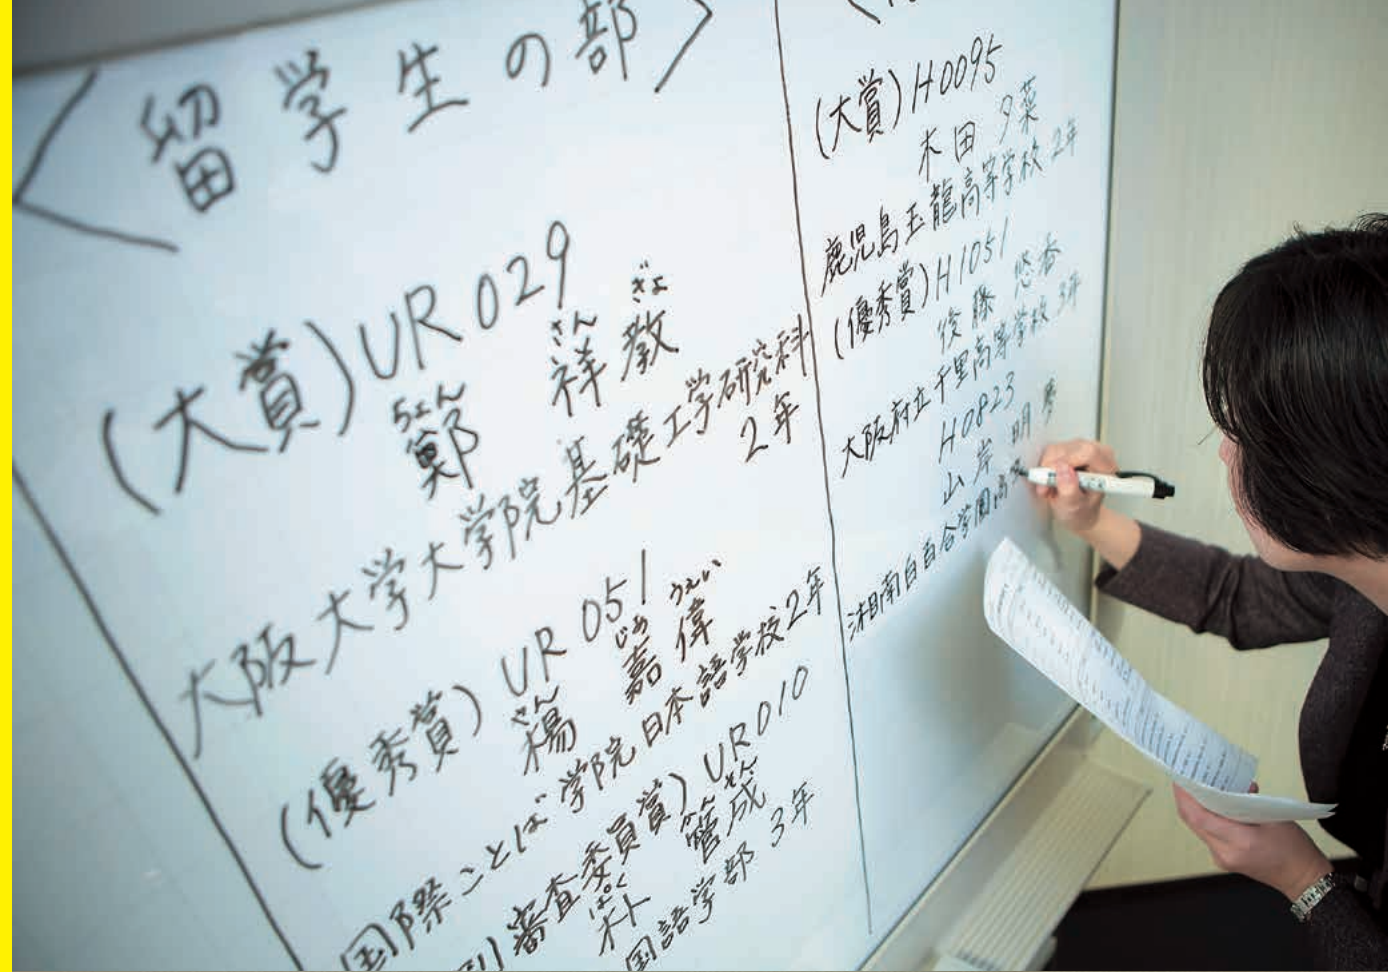 <留学生の部>
(大賞)UR029
ちょん さん ぎょ
鄭 祥教
大阪大学大学院基礎工学研究科
2年
(優秀賞)UR051
さん じゅ うぇい
楊 嘉偉
国際ことば学院日本語学校2年
審査委員賞)UR010
ぱく かん さん
朴 管成
国語学部 3年
(大賞)H0095
木田 夕菜
鹿児島玉龍高等学校 2年
(優秀賞)H1051
後藤 悠香
大阪府立千里高等学校 3年
H0823
山岸 明
湘南白百合学園高